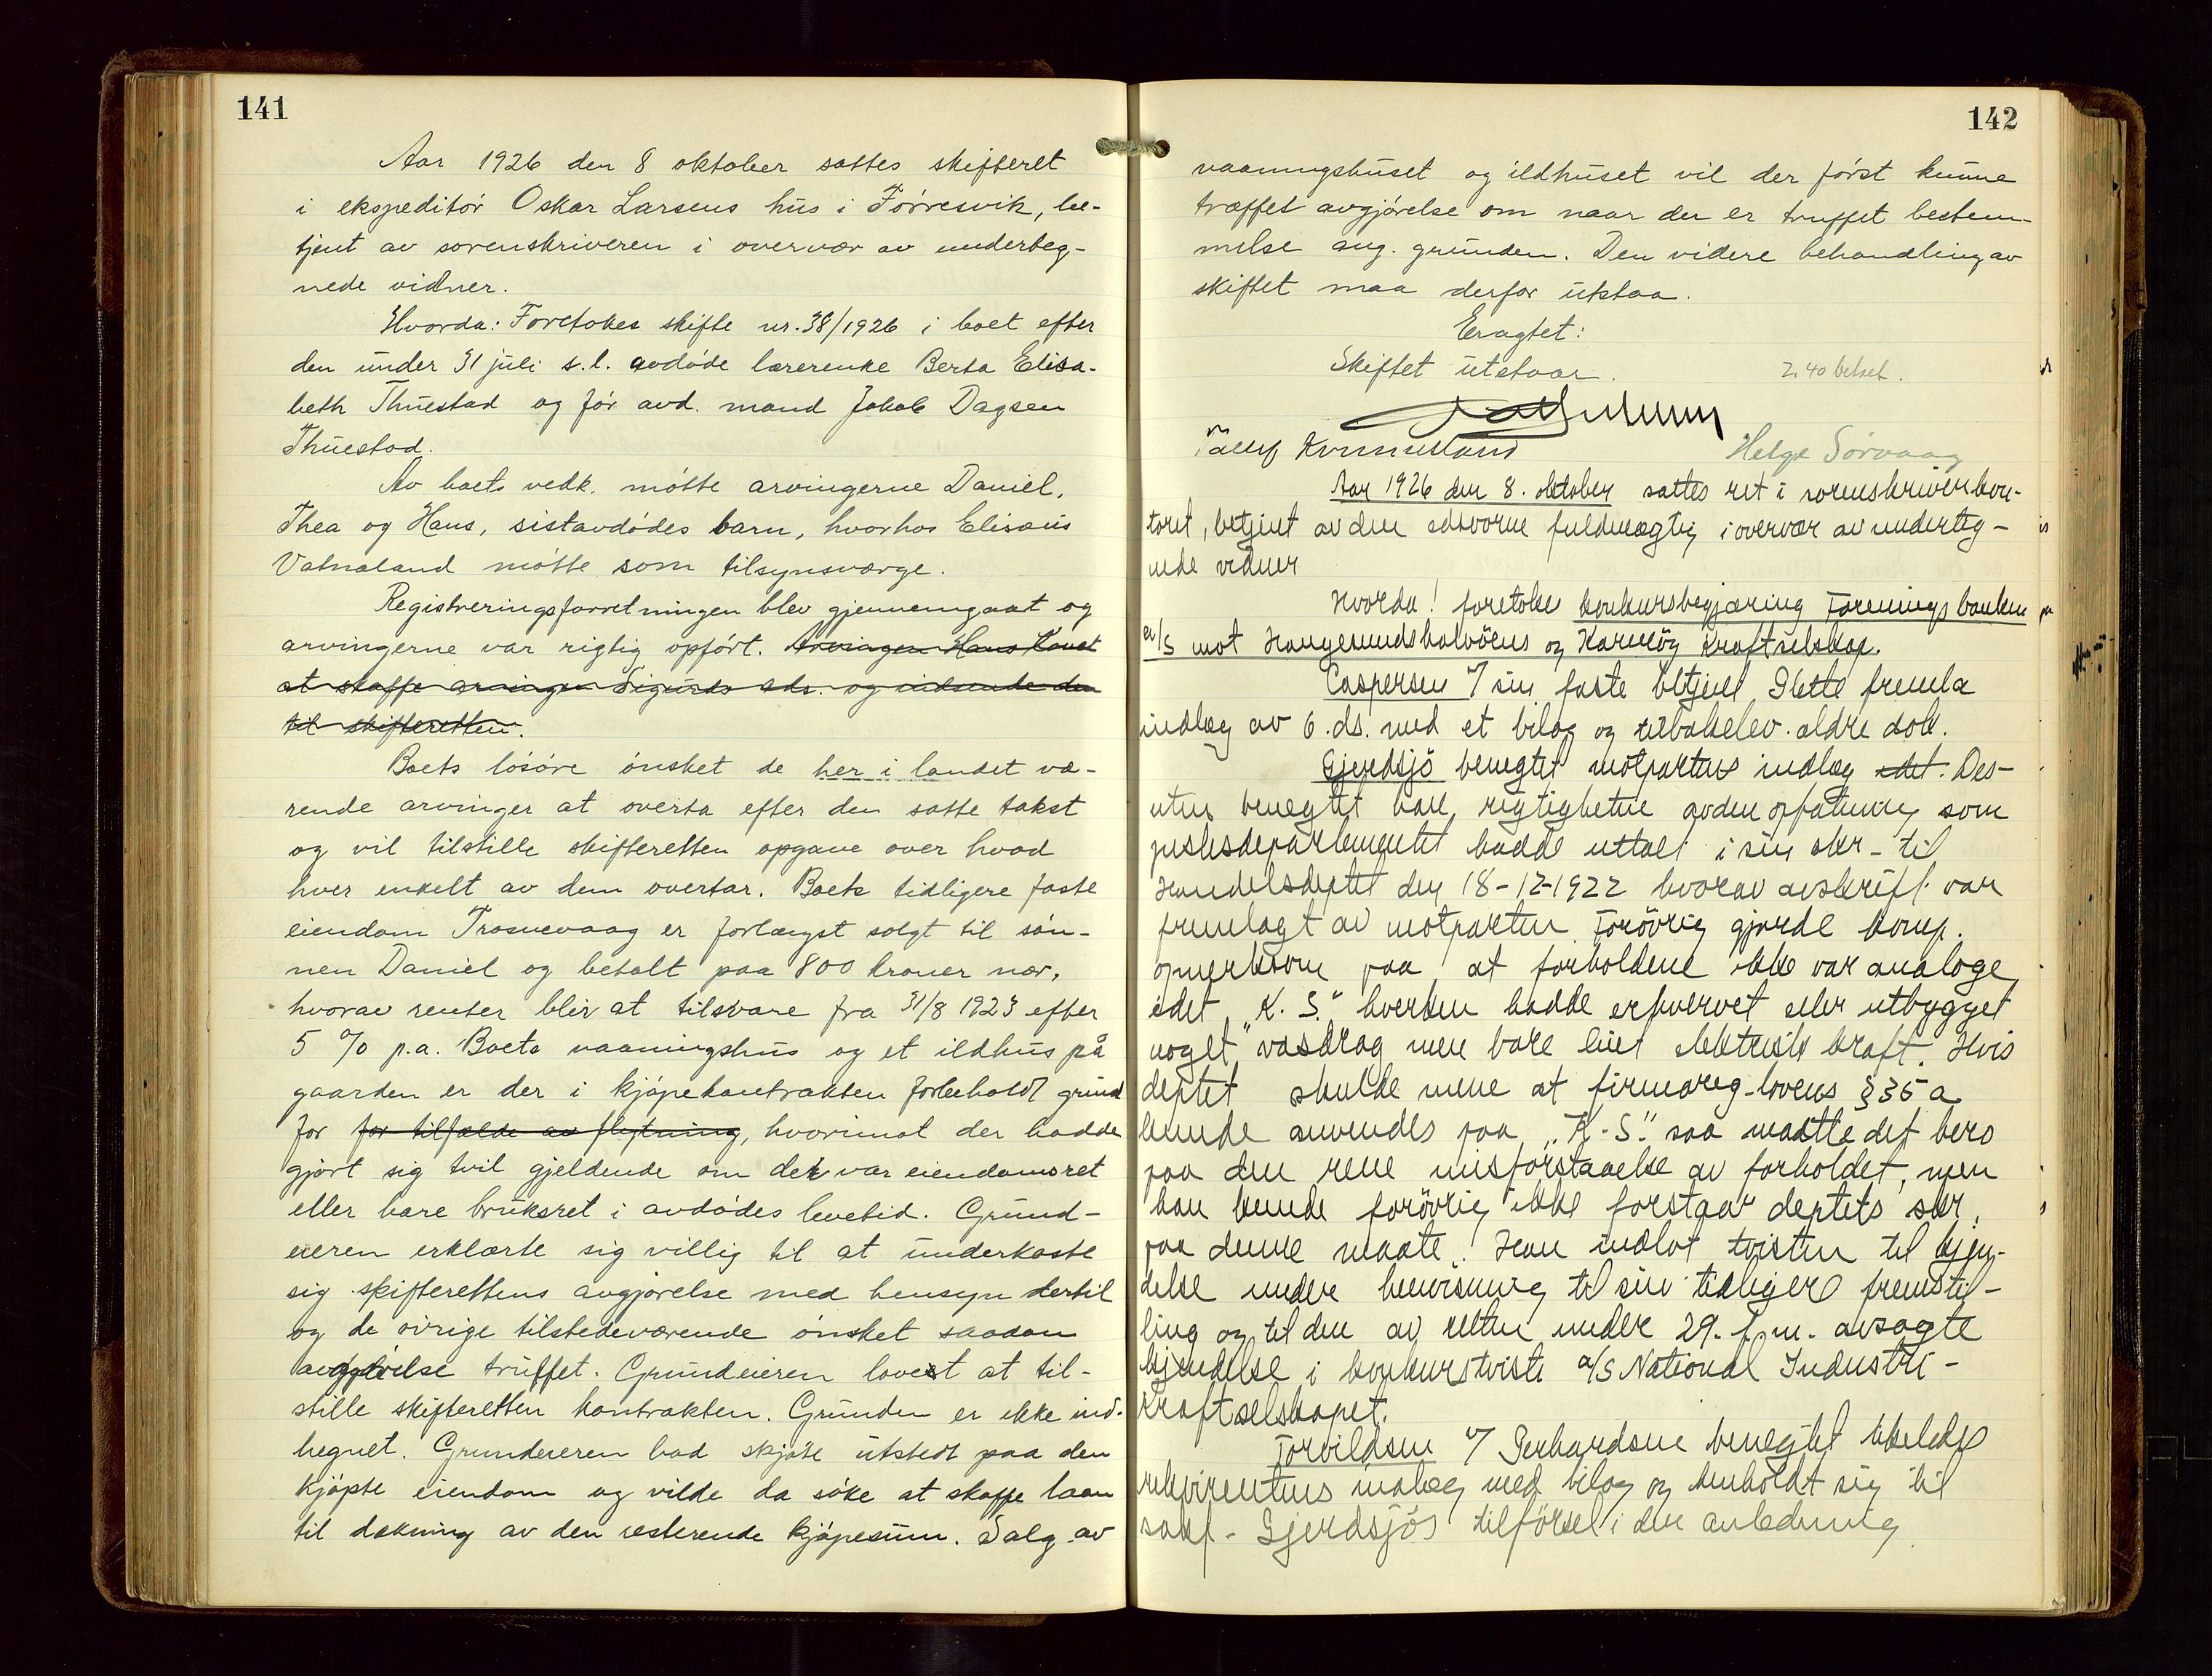 141
Aar 1926 den 8 oktober sattes skifteret
i ekspeditör Oskar Larsens hus i Förresvik, be-
tjent av sorenskriveren i overvær av underteg-
nede vidner.
Hvorda: Foretokes skifte nr. 38/1926 i boet efter
den under 31 juli s.l. avdöde lærerenke Berta Elisa-
beth Thuestad og för avd. mand Jakob Dagsen
Thuestad.
Av boets vedk. mötte arvingerne Daniel,
Thea og Hans, sistavdödes barn, hvorhos Elisæus
Vatnaland mötte som tilsynsværge.
Registreringsforretningen blev gjennemgaat og
arvingerne var rigtig opfört. Arvingen Hans lovet
at skaffe arvingen Sigurds adr. og indsende den
til skifteretten.
Boets lösöre önsket de her i landet væ-
rende arvinger at overta efter den satte takst
og vil tilstille skifteretten opgave over hvad
hver enkelt av dem overtar. Boets tidligere faste
eiendom Trosnevaag er forlængst solgt til sön-
nen Daniel og betalt paa 800 kroner nær,
hvorav renter blir at tilsvare fra 31/8 1923 efter
5 % p.a. Boets vaaningshus og et ildhus på
gaarden er der i kjöpekontrakten forbeholdt grund
for for tilfælde av flytning, hvorimot der hadde
gjort sig tvil gjeldende om det var eiendomsret
eller bare bruksret i avdödes levetid. Grund-
eieren erklærte sig villig til at underkaste
sig skifterettens avgjörelse med hensyn dertil
og de övrige tilstedeværende önsket saadan
avgjörelse truffet. Grundeieren lovet at til-
stille skifteretten kontrakten. Grunden er ikke ind-
hegnet. Grundeieren bad skjöte utstedt paa den
kjöpte eiendom og vilde da söke at skaffe laan
til dækning av den resterende kjöpesum. Salg av
142
vaaningshuset og ildhuset vil der först kunne
træffes avgjörelse om naar der er truffet bestem-
melse ang. grunden. Den videre behandling av
skiftet maa derfor utstaa.
Eragtet:
Skiftet utstaar.
2.40 betalt.
Helge Sörvaag
Aar 1926 den 8. oktober sattes ret i sorenskriverkon-
toret, betjent av den edsvorne fuldmægtig i overvær av underteg-
nede vidner
Hvorda! foretokes konkursbegjæring Foreningsbanken
a/S mot Haugesundshalvöens og Karmöy Kraftselskap.
Caspersen v/ sin faste betjent Slette fremla
indlæg av 6. ds. med et bilag og tilbakelev. ældre dok.
Gjerdsjö benegtet motpartens indlæg idet. Des-
uten benegtet han rigtigheten av den opfatning som
justisdepartementet hadde uttalt i sin skr- til
Handelsdeptet den 18-12-1922 hvorav avskrift var
fremlagt av motparten. Forövrig gjorde komp.
opmerksom paa at forholdene ikke var analoge,
idet "K. S." hverken hadde erhvervet eller utbygget
noget vasdrag men bare leiet elektrisk kraft. Hvis
deptet skulde mene at firmareg-lovens § 35 a
kunde anvendes paa "K-S." saa maatte det bero
paa den rene misforstaaelse av forholdet, men
han kunde forövrig ikke forstaa deptets skr.
paa denne maate. Han indlot tvisten til kjen-
delse under henvisning til sin tidligere fremstil-
ling og til den av retten under 29. f.m. avsagte
kjendelse i konkurstviste a/S National Industri-
Kraftselskapet.
Torvildsen v/ Gerhardsen benegtet likeledes
rekvirentens indlæg med bilag og henholdt sig til
sakf- Gjerdsjös tilförsel i den anledning